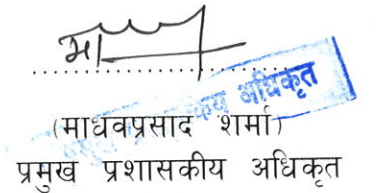 (माधवप्रसाद शर्मा)
प्रमुख प्रशासकीय अधिकृत